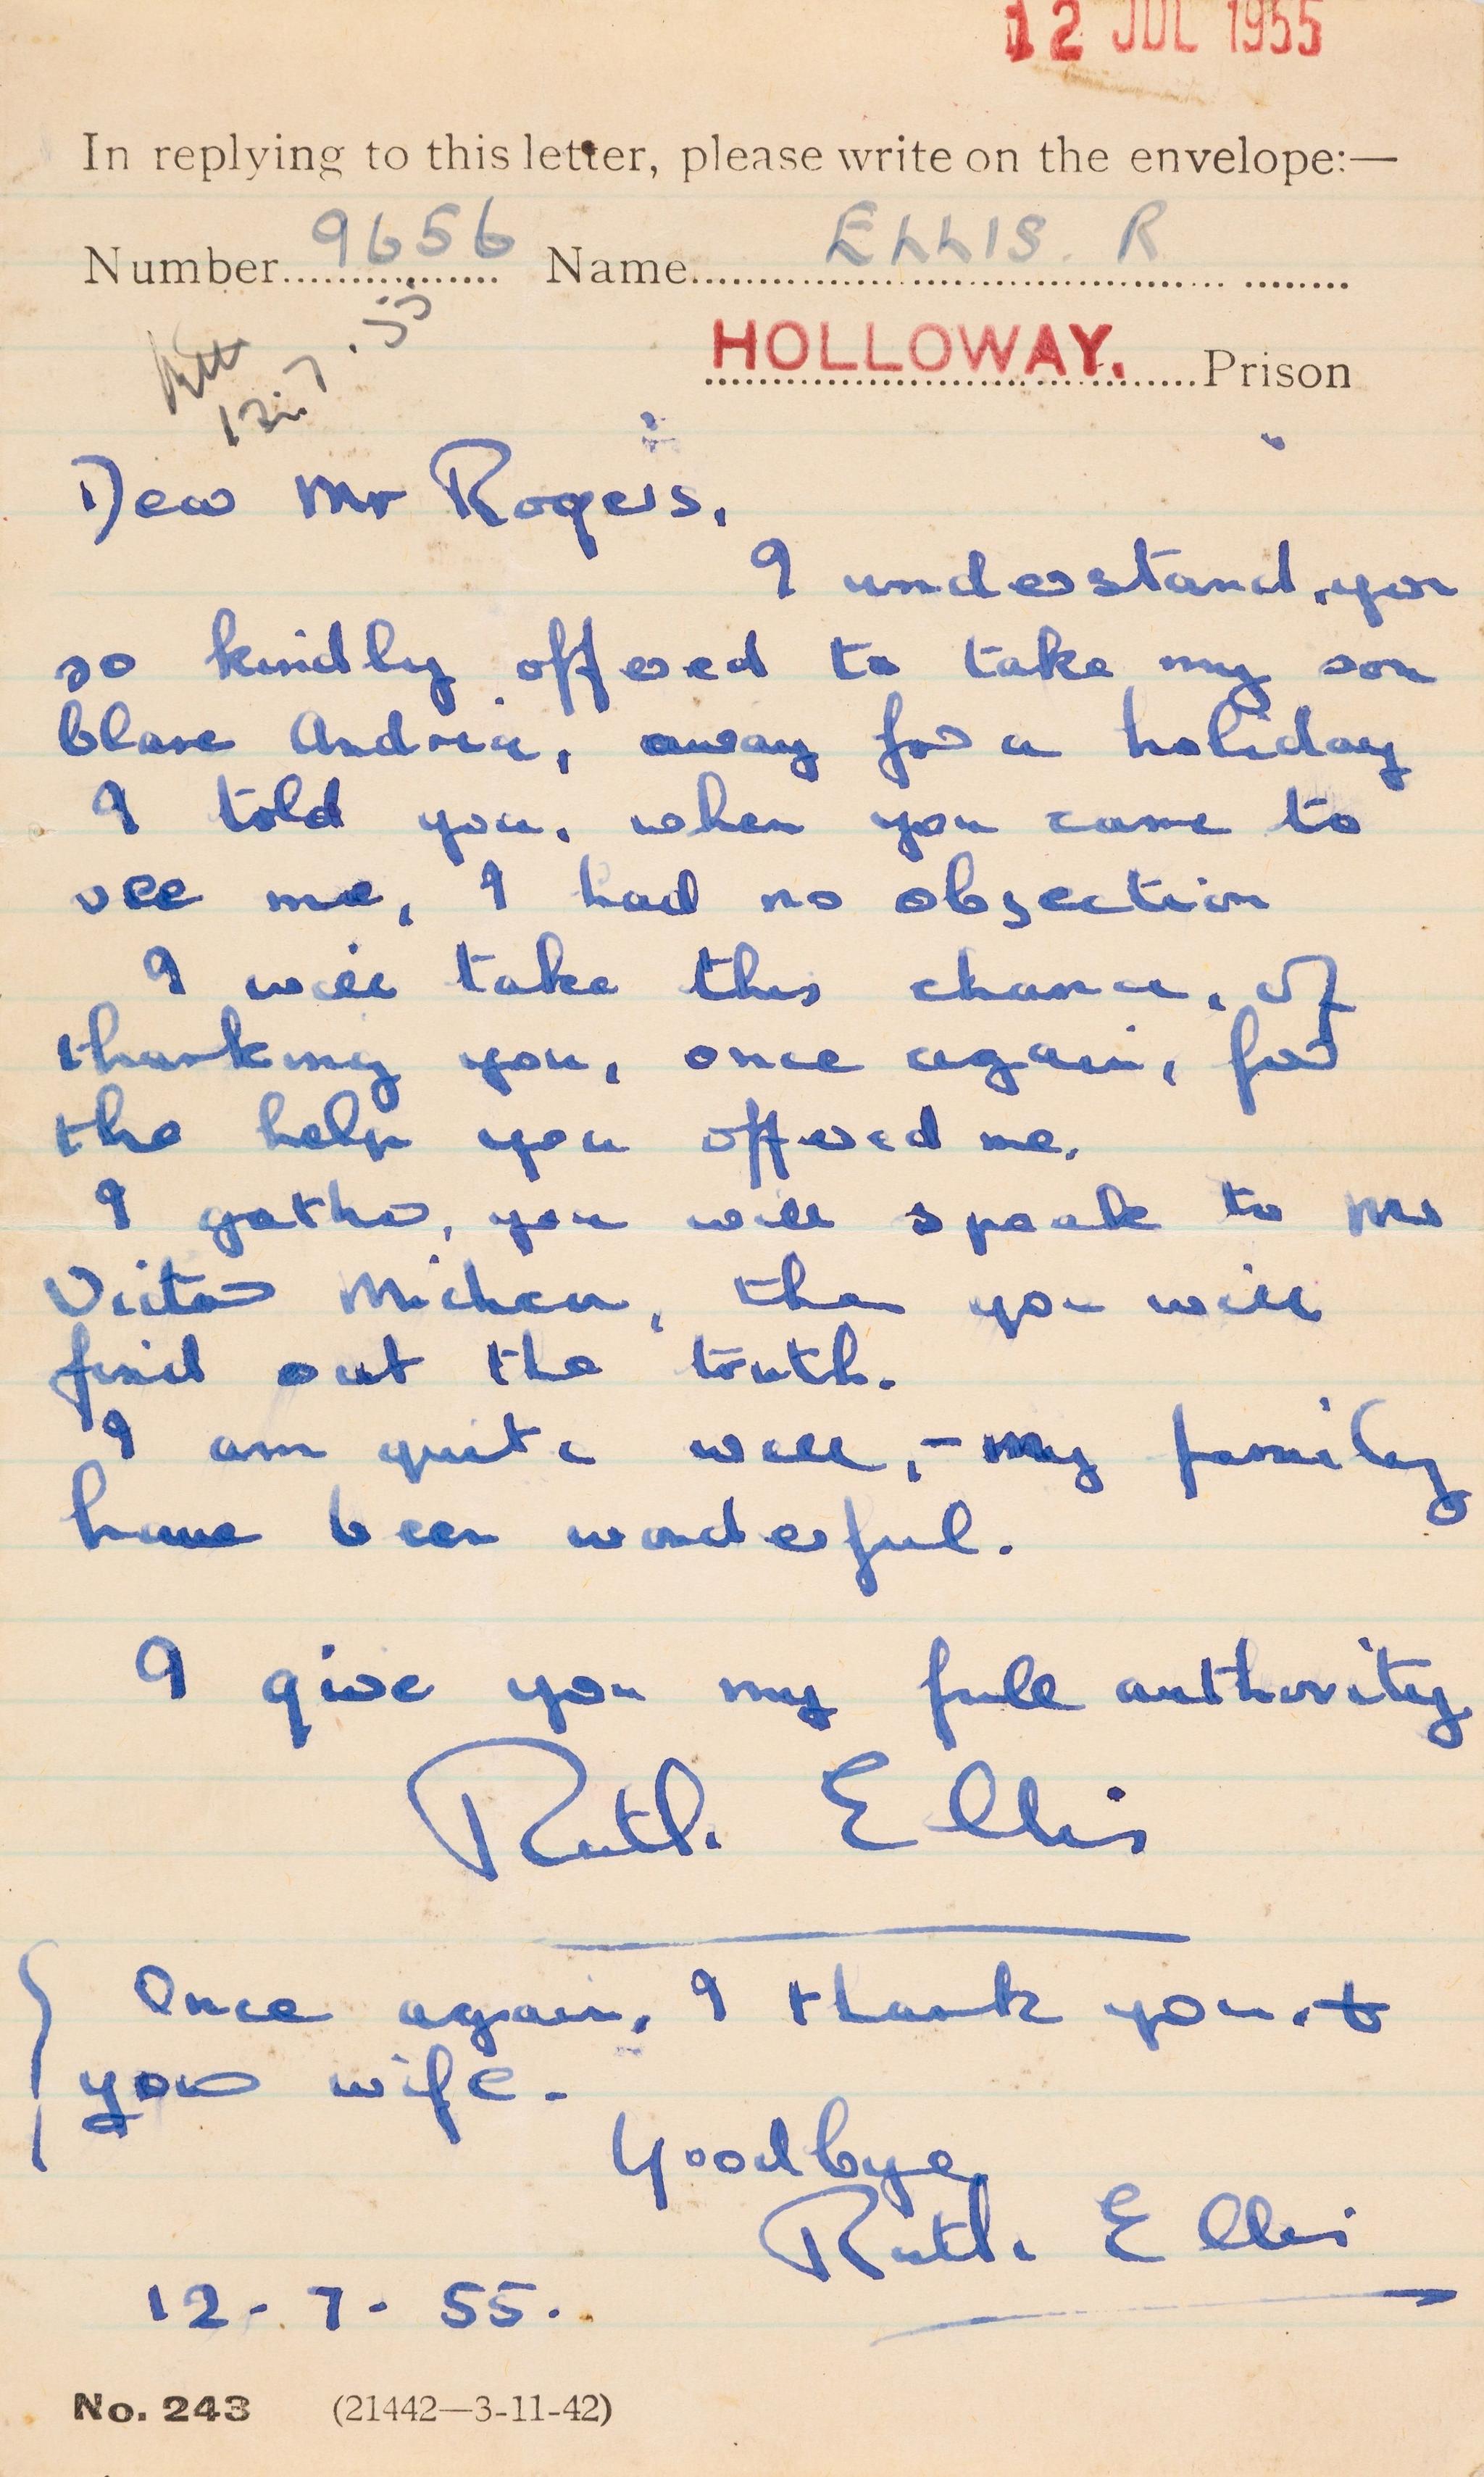 12 JUL 1955
In replying to this letter, please write on the envelope:—
Number 9656 Name ELLIS. R
HOLLOWAY. Prison
12.7.55
Dear Mr Rogers,
I understand, you
so kindly offered to take my son
Clare Andria, away for a holiday
I told you, when you came to
see me, I had no objection
I will take this chance, of
thanking you, once again, for
the help you offered me.
I gather, you will speak to Mr
Victor Michen, then you will
find out the truth.
I am quite well, - my family
have been wonderful.
I give you my full authority
Ruth. Ellis
Once again, I thank you, &
your wife.
Goodbye
Ruth. Ellis
12-7-55.
No. 243 (21442—3-11-42)